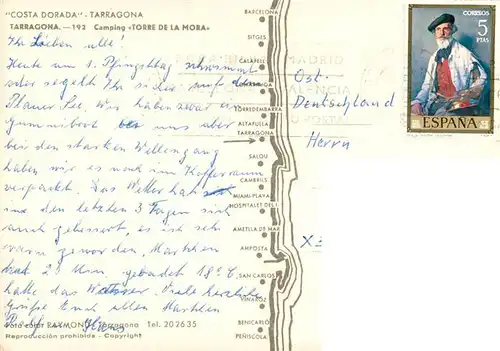 "COSTA DORADA" - TARRAGONA
TARRAGONA. — 192 Camping «TORRE DE LA MORA»
Ihr Lieben alle!
Heute am 1. Pfingsttag schwimmt
oder segelt Ihr sicher auf dem
Plauer See. Wir haben zwar ein
Gummiboot bei uns aber
bei den starken Wellengang
haben wir es noch im Kofferraum
verpackt. Das Wetter hat
in den letzten 3 Tagen sich
auch gebessert, es ist sehr
warm geworden,
hat gebadet 18°C
hatte das Wasser. Viele herzliche
Grüße Euch allen
Hans
Foto color RAYMOND Tarragona Tel. 202635
Reproducción prohibida - Copyright
BARCELONA
SITGES
CALAFELL
TORREDEMBARRA
ALTAFULLA
TARRAGONA
SALOU
CAMBRILS
MIAMI PLAYA
HOSPITALET DEL I.
AMETLLA DE MAR
AMPOSTA
SAN CARLOS
VINAROZ
BENICARLO
PEÑISCOLA
MADRID
VALENCIA
Ost-
Deutschland
Herrn
CORREOS
5
PTAS
ESPAÑA